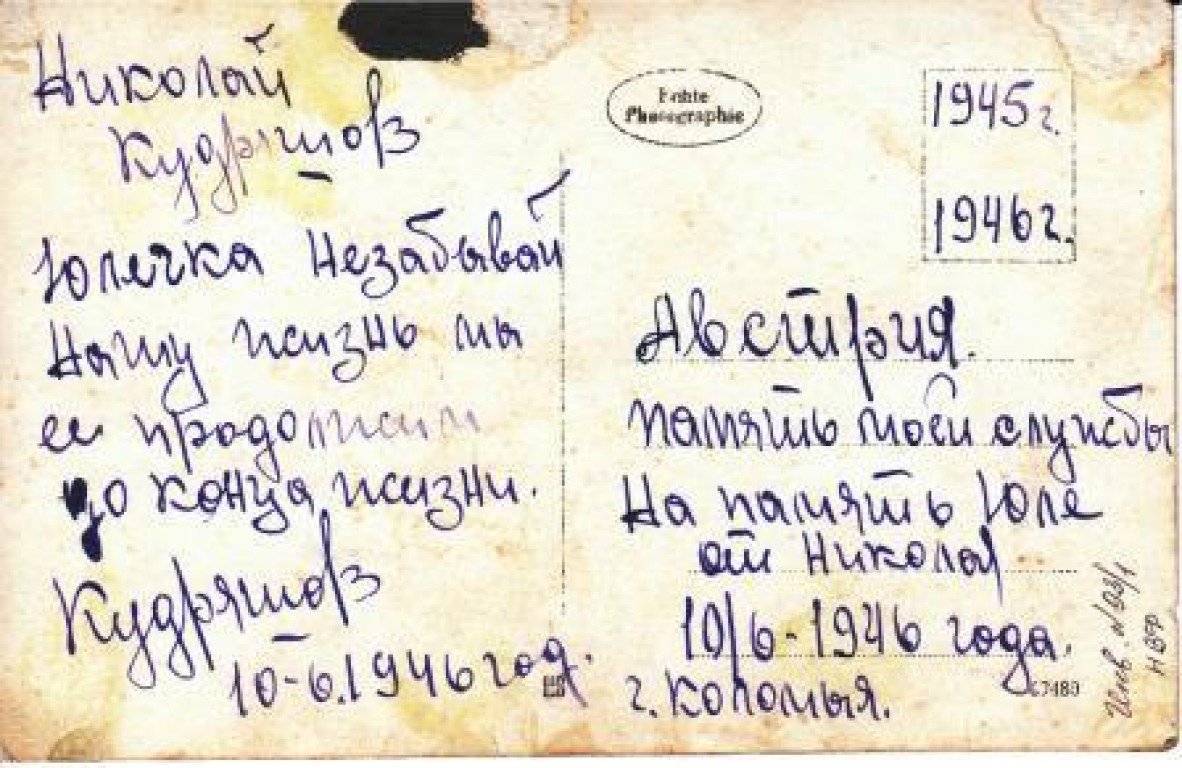 Николай
Кудряшов
Юлечка Незабывай
Нашу жизнь мы
ее продолжим
до конца жизни.
Кудряшов
10-6.1946 год.
Echte
Photographie
1945 г.
1946 г.
Австрия.
память моей службы
На память Юле
от Николая
10/6-1946 года.
г. Коломыя.
7480
Инв. №
НВФ